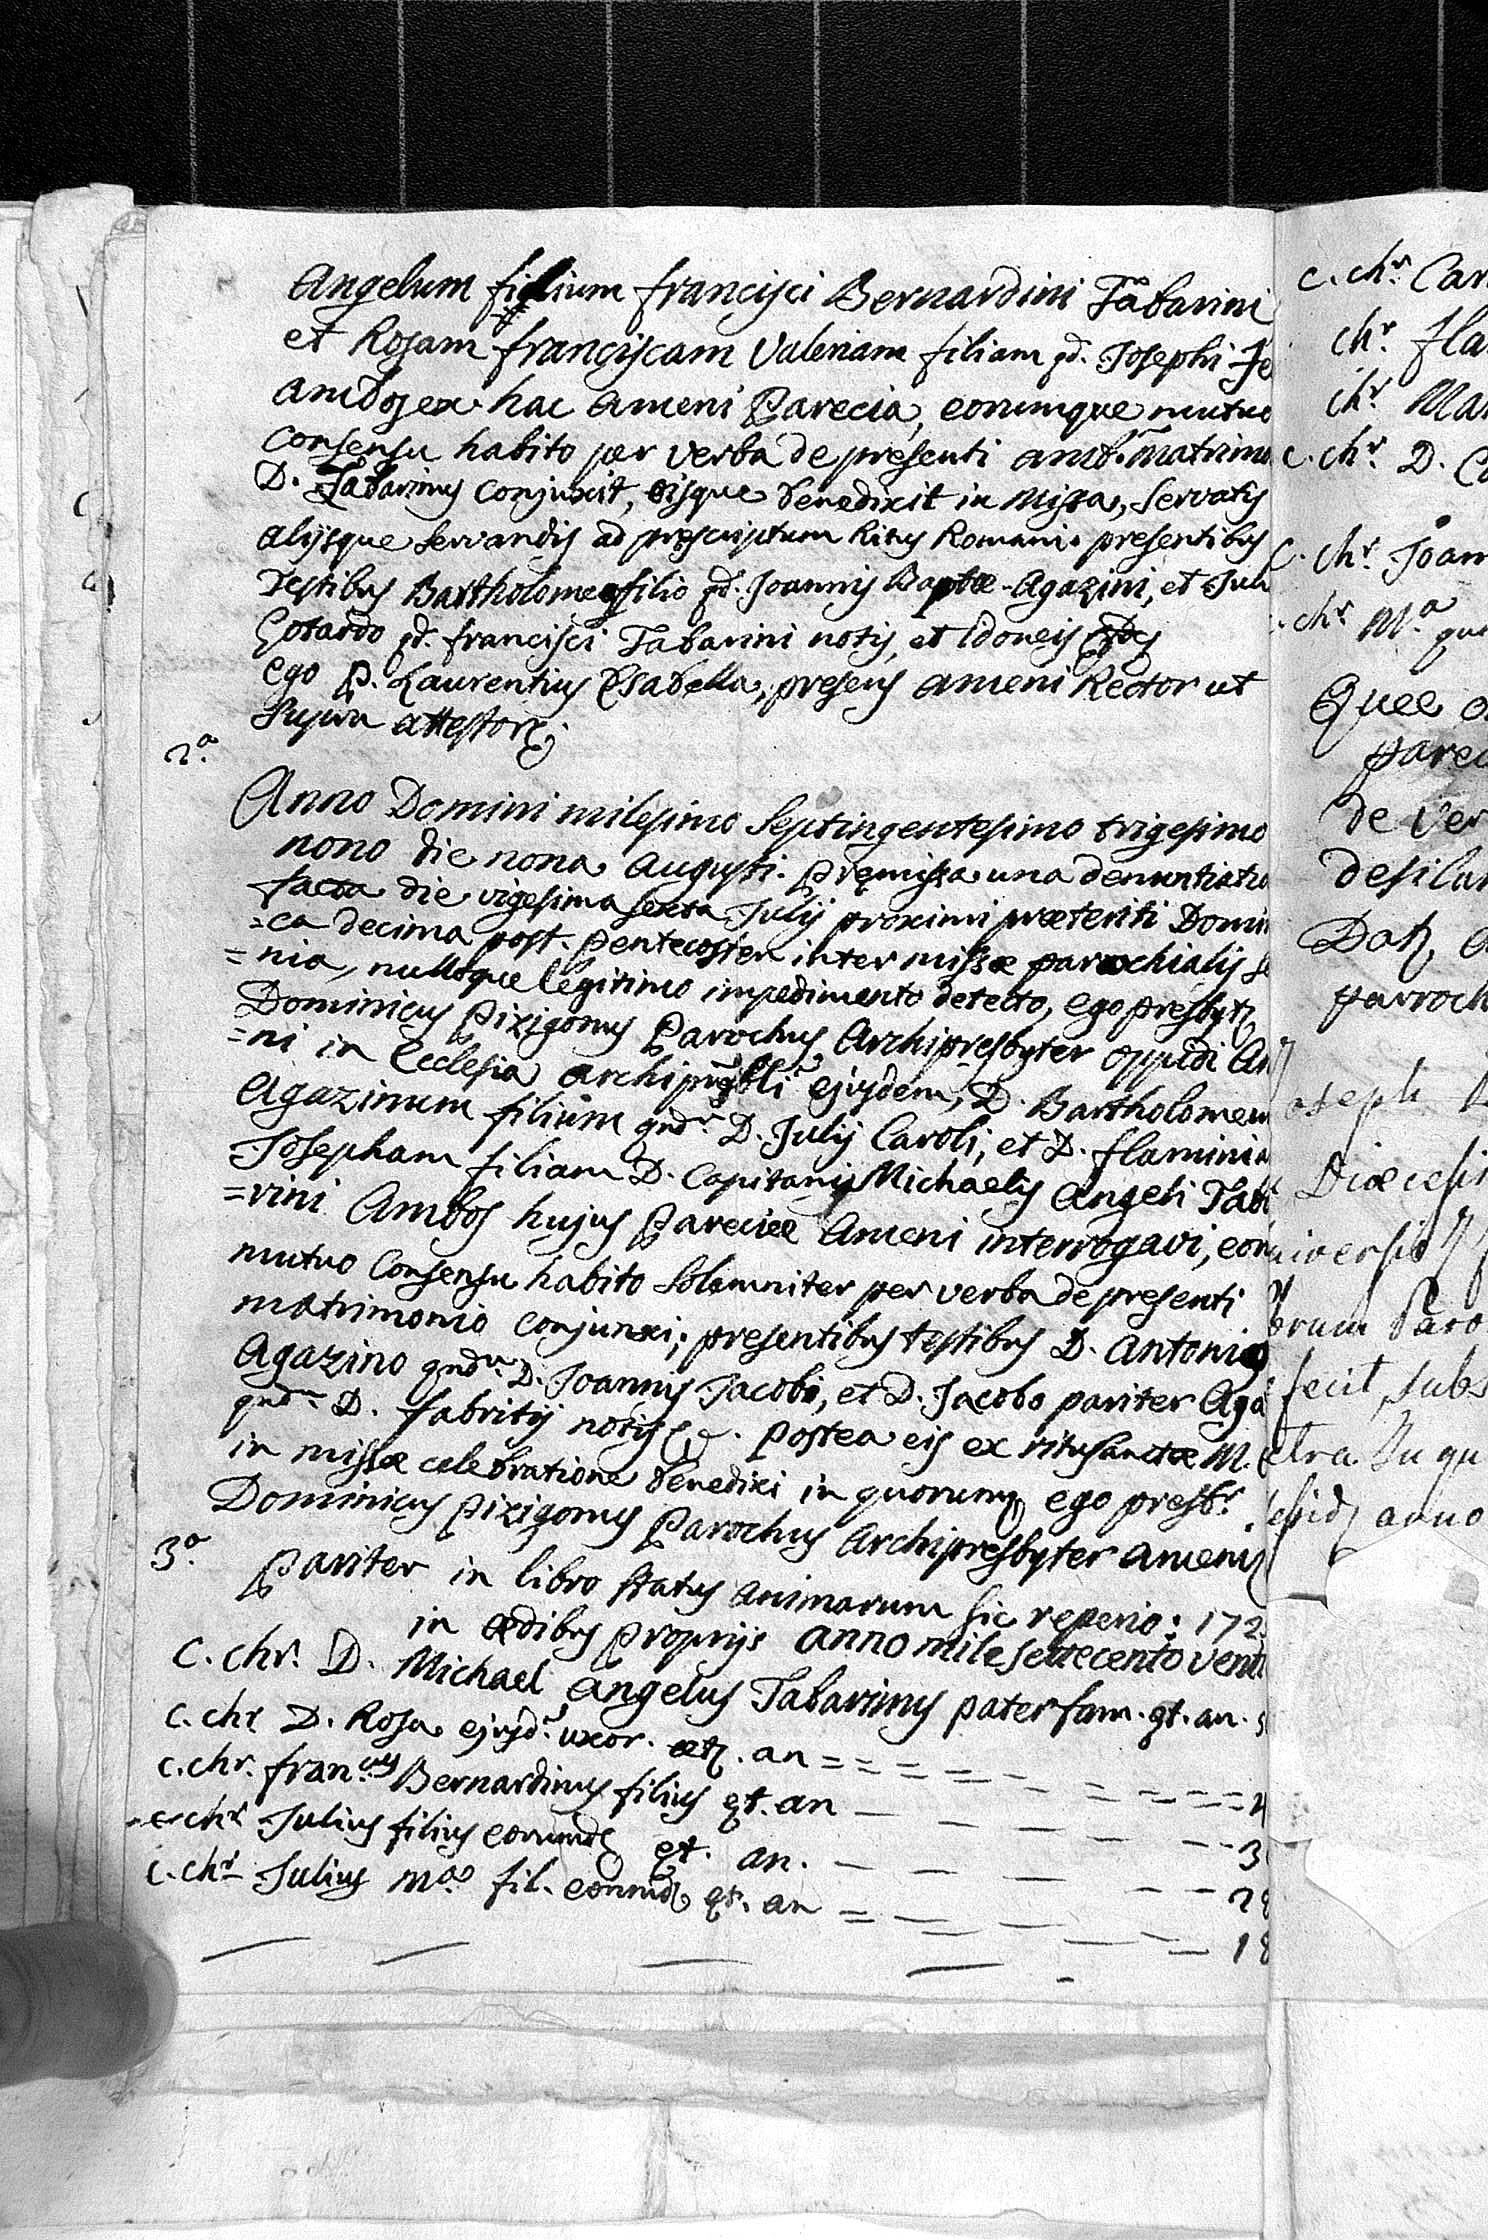 Angelum filium francisci Bernardini Tabarini
et Rosam franciscam Valeriam filiam qd. Josephi
ambos ex hac Ameni Parecia, eorumque mutuo
consensu habito per verba de presenti matrimo
D. Tabarinus conjunxit, eisque benedixit in Missa, servatis
alijsque servandis ad prescriptum Ritus Romani. presentibus
Testibus Bartholomeo filio qd. Joannis Baptæ Agazini, et Juli
Gotardo qd. francisci Tabarini notis, et Idoneis
ego P. Laurentius Isabella, presens Ameni Rector ut
supra attestor
2.a
Anno Domini milesimo Septingentesimo trigesimo
nono die nona Augusti. Premissa una denuntiatio
facta die vigesima sexta Julij proximi præteriti Domi
=ca decima post Pentecosten inter missæ parochialis
=nia, nulloque legitimo impedimento detecto, ego presbyt
Dominicus Pizigonus Parochus Archipresbyter oppidi Am
=ni in Ecclesia ejusdem, D. Bartholomeu
Agazinum filium qndm D. Julij Caroli, et D. flaminia
Josepham filiam D. Capitanij Michaelis Angeli Taba
=rini Ambos hujus Pareciæ Ameni interrogavi, eor
mutuo Consensu habito solemniter per verba de presenti
matrimonio conjunxi; presentibus testibus D. Antonio
Agazino qndm D. Joannis Jacobi, et D. Jacobo pariter Aga
qndm D. fabritij notis &. Postea eis ex ritu sanctæ M.
in missæ celebratione benedixi in quorum ego presbr
Dominicus Pizigonus Parochus Archipresbyter Ameni
3.o
Pariter in libro status animarum sic reperio: 172
in ædibus proprijs anno mile settecento venti
C. chr. D. Michael Angelus Tabarinus pater fam. æt. an.
C. chr D. Rosa ejusd. uxor. æt. an = = = = = = = =
C. chr. fran.cus Bernardinus filius æt. an — — — — 3
C. chr Julius filius eorumd æt. an. — — — — 28
C. chr Julius M.a fil. eorumd æt. an = — — — — 18
C. chr. Car
chr. fla
chr. Mar
C. chr. D.
C. chr. Joan
chr M.a
Quæ
parec
de ver
desilar
Dat
parroch
oseph
Diœcesi
niversis
orum Paro
fecit, subs
anno